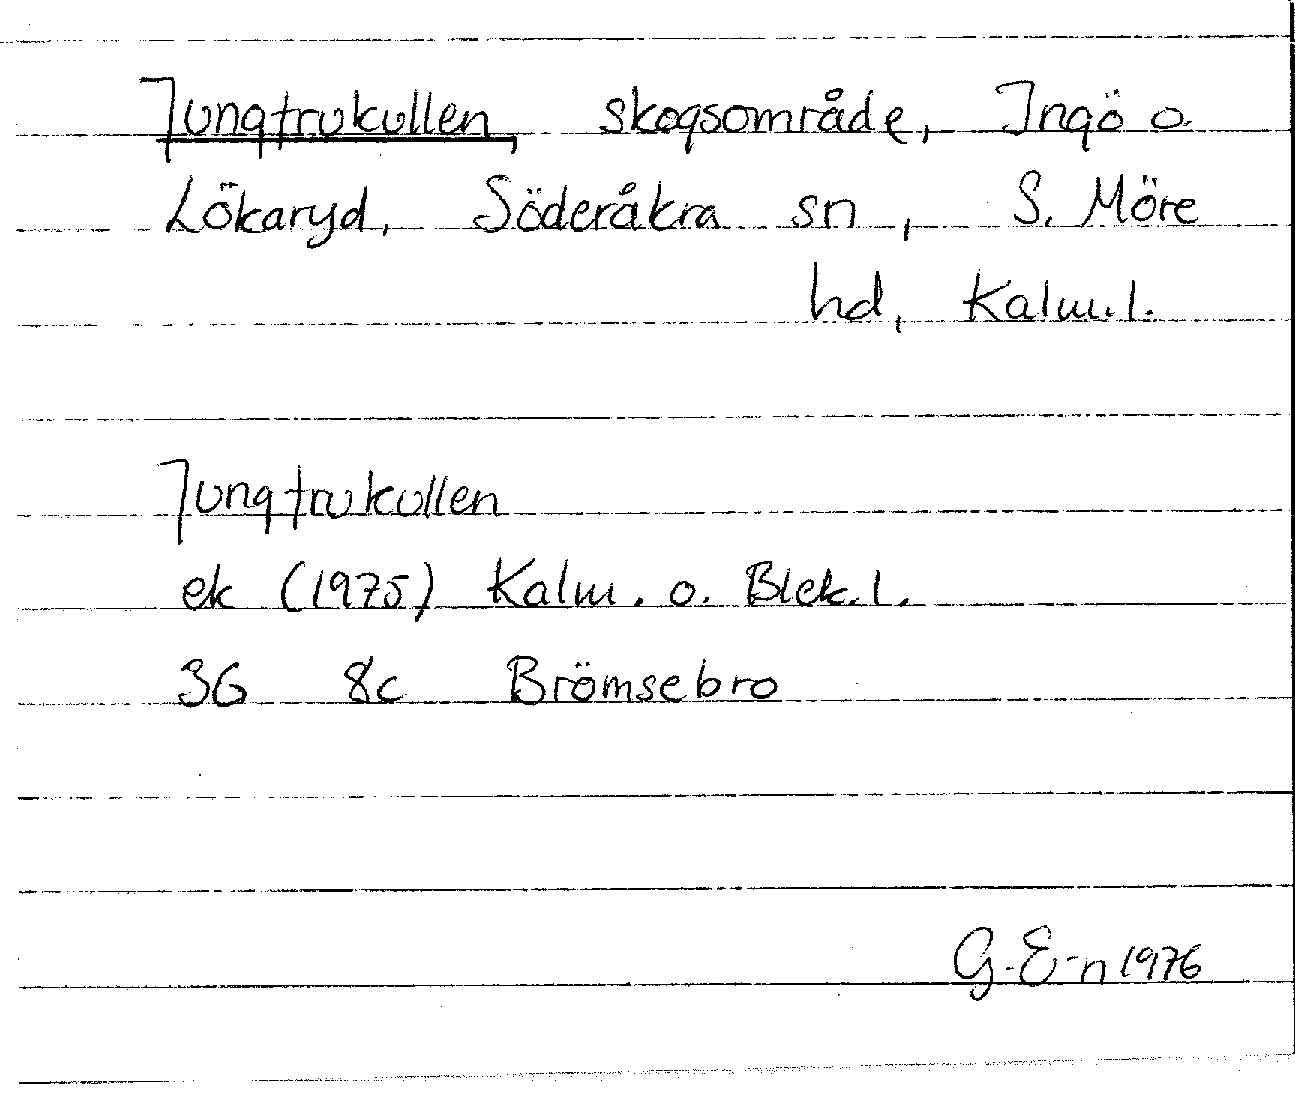 Jungfrukullen, skogsområde, Ingö o.
Lökaryd, Söderåkra sn, S. Möre
hd, Kalm.l.
Jungfrukullen
ek (1975) Kalm. o. Blek.l.
3G 8c Brömsebro
G.E-n 1976